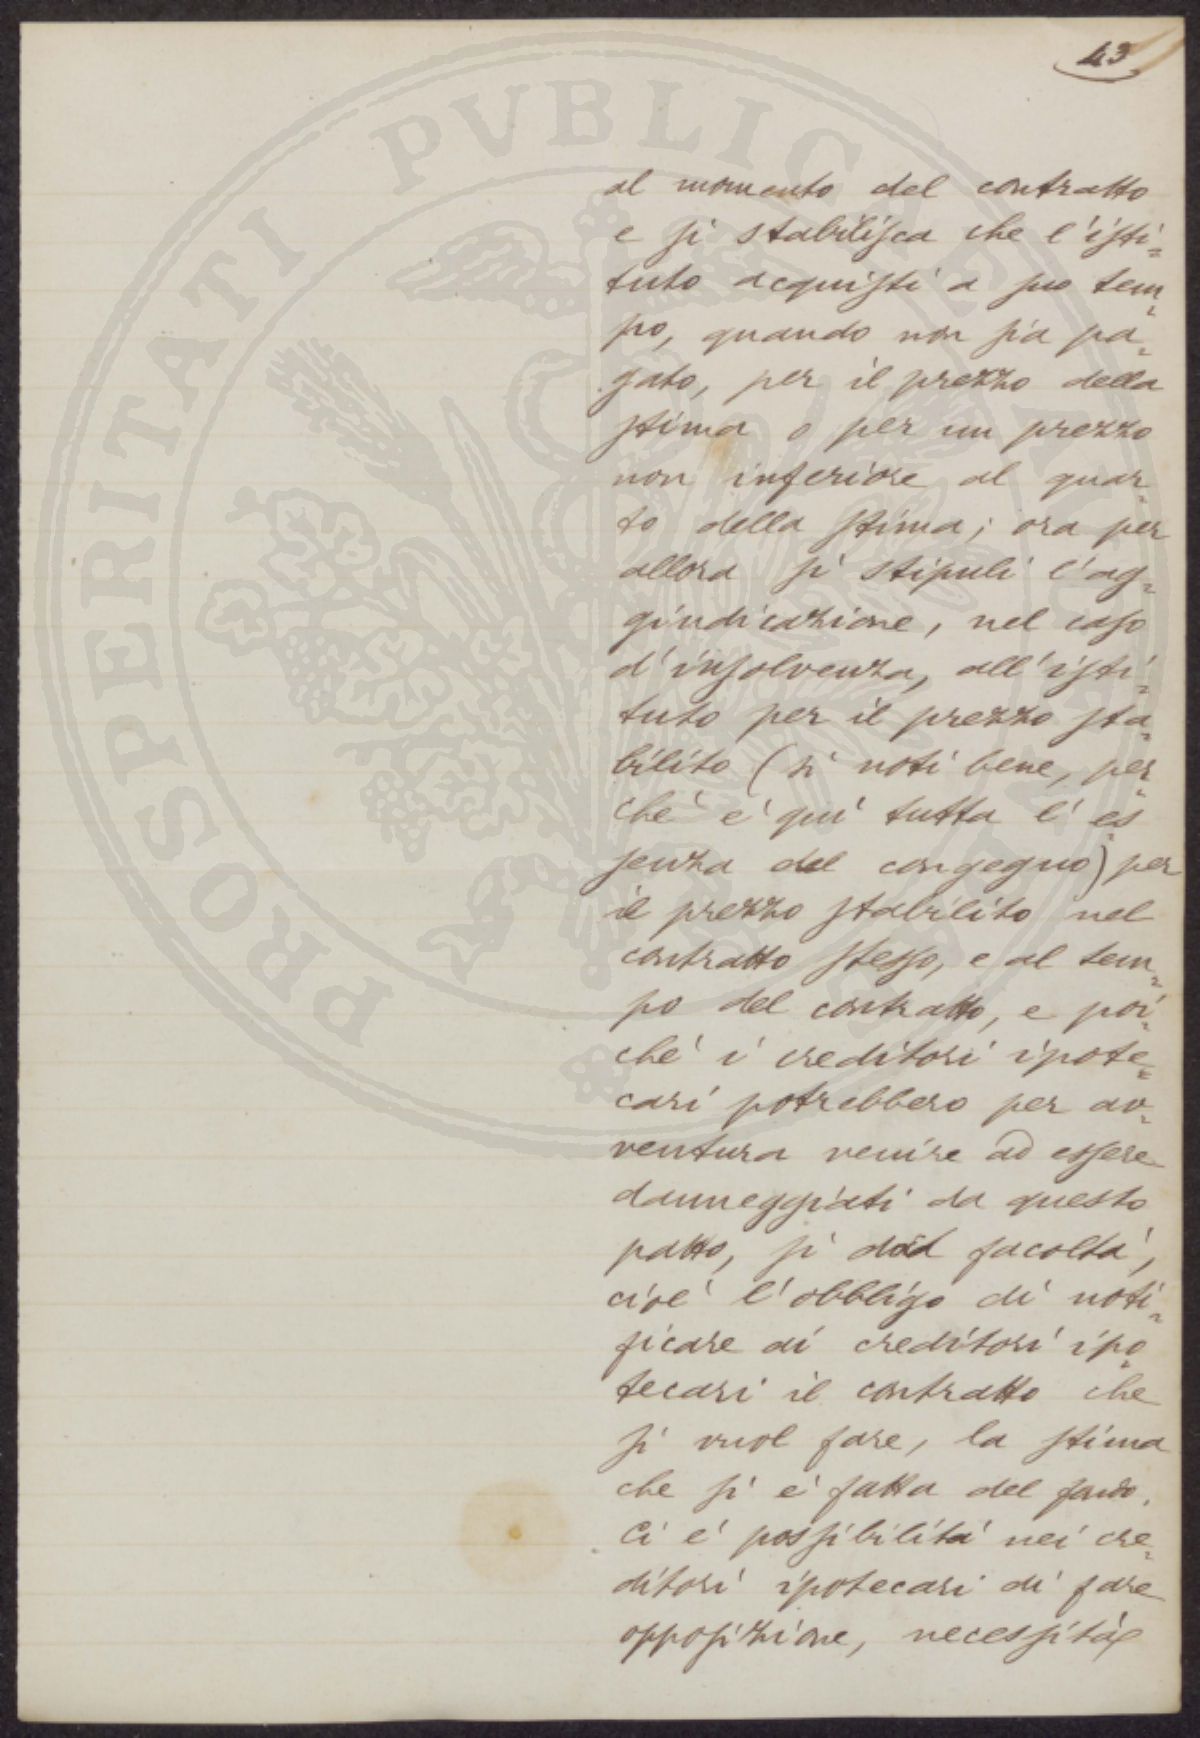 43
PROSPERITATI PVBLICAE AVGENDAE
al momento del contratto
e si stabilisca che l'isti=
tuto acquisti a suo tem=
po, quando non sia pa=
gato, per il prezzo della
stima o per un prezzo
non inferiore al quar=
to della stima; ora per
allora si stipuli l'ag=
giudicazione, nel caso
d'insolvenza, all'isti=
tuto per il prezzo sta=
bilito (si noti bene, per=
chè è quì tutta l'es=
senza del congegno) per
il prezzo stabilito nel
contratto stesso, e al tem=
po del contratto, e poi=
chè i creditori ipote=
cari potrebbero per av=
ventura venire ad essere
danneggiati da questo
patto, si dà facoltà,
cioè l'obbligo di noti=
ficare ai creditori ipo=
tecari il contratto che
si vuol fare, la stima
che si è fatta del fondo.
Ci è possibilità nei cre=
ditori ipotecari di fare
opposizione, necessità